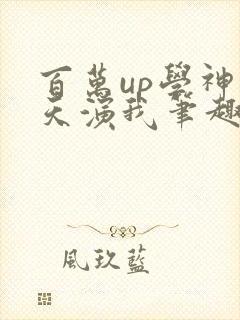 百萬up學神
天演我筆趣
風玖藍